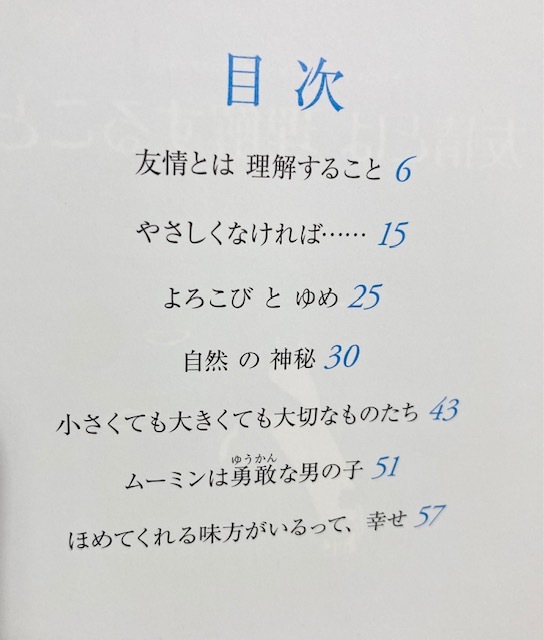 目次
友情とは 理解すること 6
やさしくなければ…… 15
よろこび と ゆめ 25
自然 の 神秘 30
小さくても大きくても大切なものたち 43
ゆうかん
ムーミンは勇敢な男の子 51
ほめてくれる味方がいるって、幸せ 57